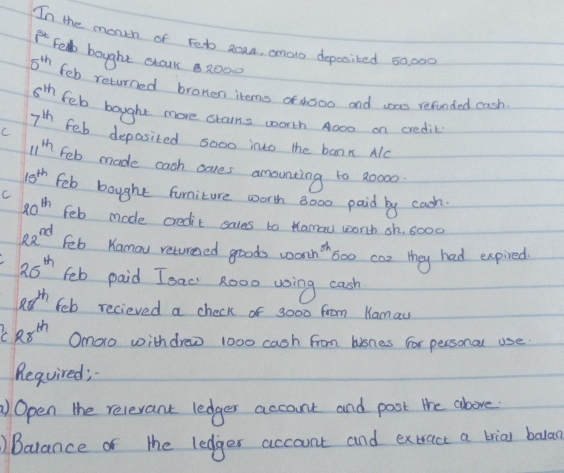 In the month of Feb 2024, omolo deposited 50,000
1st Feb bought stock 2000
5th feb returned broken items of 4000 and was refunded cash.
6th feb bought more stains worth 4000 on credit.
c 7th Feb deposited 5000 into the bank A/C
11th Feb made cash sales amounting to 20000.
15th feb bought furniture worth 3000 paid by cash.
c 20th feb made credit sales to Kamau worth sh. 6000
22nd feb Kamau returned goods worth sh 500 coz they had expired.
c 25th feb paid Isac 2000 using cash.
28th feb recieved a check of 3000 from Kamau
c 28th Omolo withdrew 1000 cash from busines for personal use.
Required:-
a) Open the relevant ledger account and post the above.
) Balance of the ledger account and extract a trial balan